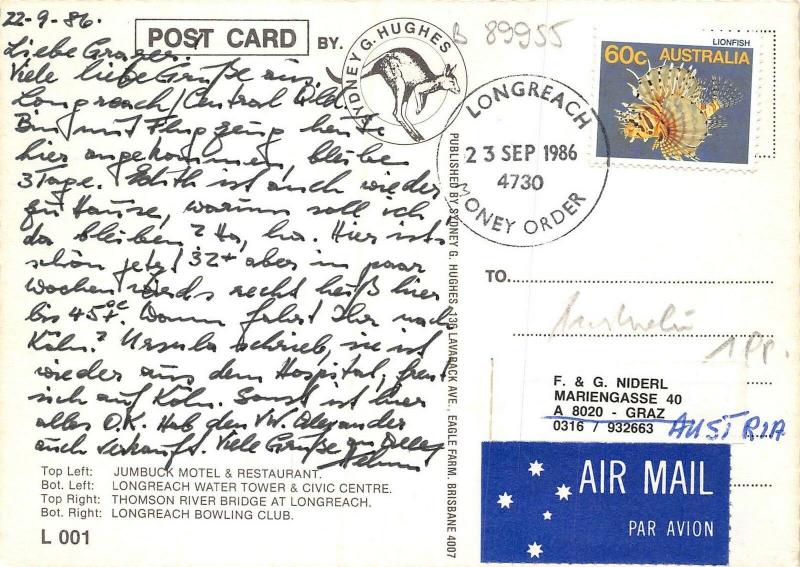 22-9-86.
Liebe Grazer.
Viele liebe Grüße aus
Longreach/Central Qld
Bin mit Flugzeug heute
hier angekommen bleibe
3 Tage. Edith ist auch wieder
zu Hause, warum soll ich
da bleiben? Ha, ha. Hier ist's
schön jetzt 32+ aber in paar
Wochen wirds recht heiß hier
bis 45+°C. Wann fahrt Ihr nach
Köln? Ursula schrieb, sie ist
wieder aus dem Hospital, freut
sich auf Köln. Sonst ist hier
alles O.K. Hab den VW. Alexander
auch verkauft. Viele Grüße an
POST CARD BY.
SYDNEY G. HUGHES
B 89955
LIONFISH
60c AUSTRALIA
LONGREACH
23 SEP 1986
4730
MONEY ORDER
PUBLISHED BY SYDNEY G. HUGHES, 136 LAVARACK AVE., EAGLE FARM, BRISBANE 4007
TO
Australien
1 Pp.
F. & G. NIDERL
MARIENGASSE 40
A 8020 - GRAZ
0316 / 932663
AUSTRIA
AIR MAIL
PAR AVION
Top Left: JUMBUCK MOTEL & RESTAURANT.
Bot. Left: LONGREACH WATER TOWER & CIVIC CENTRE.
Top Right: THOMSON RIVER BRIDGE AT LONGREACH.
Bot. Right: LONGREACH BOWLING CLUB.
L 001